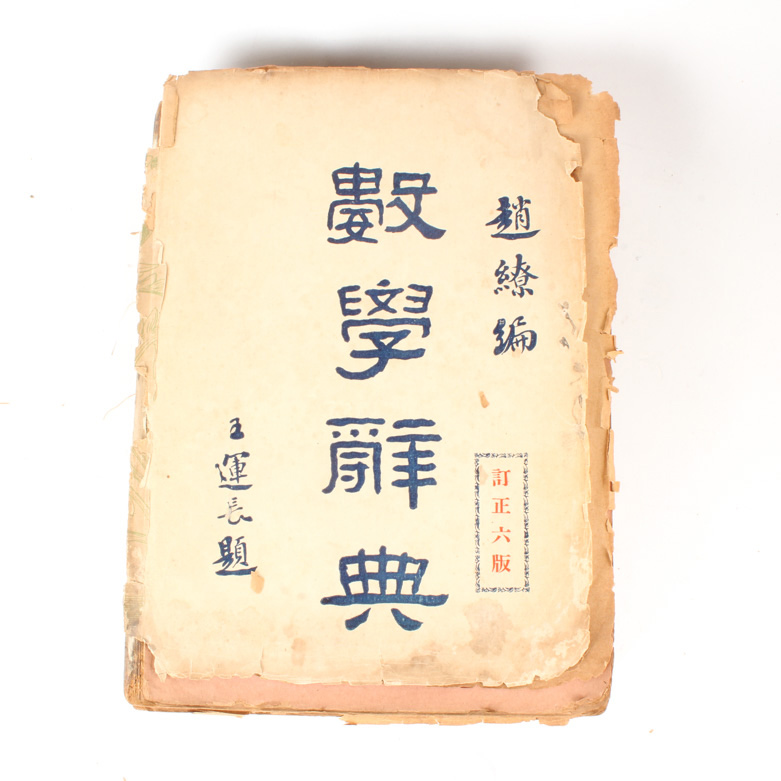 趙繚編
訂正六版
數學辭典
王運長題